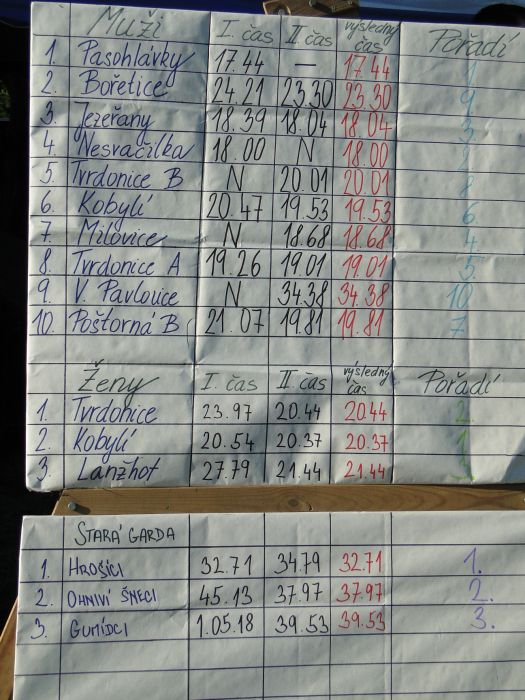 Muži I. čas II. čas výsledný čas Pořadí
1. Pasohlávky 17.44 — 17.44 1
2. Bořetice 24.21 23.30 23.30 9
3. Jezeřany 18.39 18.04 18.04 3
4. Nesvačilka 18.00 N 18.00 2
5. Tvrdonice B N 20.01 20.01 8
6. Kobylí 20.47 19.53 19.53 6
7. Milovice N 18.68 18.68 4
8. Tvrdonice A 19.26 19.01 19.01 5
9. V. Pavlovice N 34.38 34.38 10
10. Poštorná B 21.07 19.81 19.81 7
Ženy I. čas II. čas výsledný čas Pořadí
1. Tvrdonice 23.97 20.44 20.44 2
2. Kobylí 20.54 20.37 20.37 1
3. Lanžhot 27.79 21.44 21.44 3
STARÁ GARDA
1. HROŠÍCI 32.71 34.79 32.71 1.
2. OHNIVÍ ŠNECI 45.13 37.97 37.97 2.
3. GUMÍDCI 1.05.18 39.53 39.53 3.